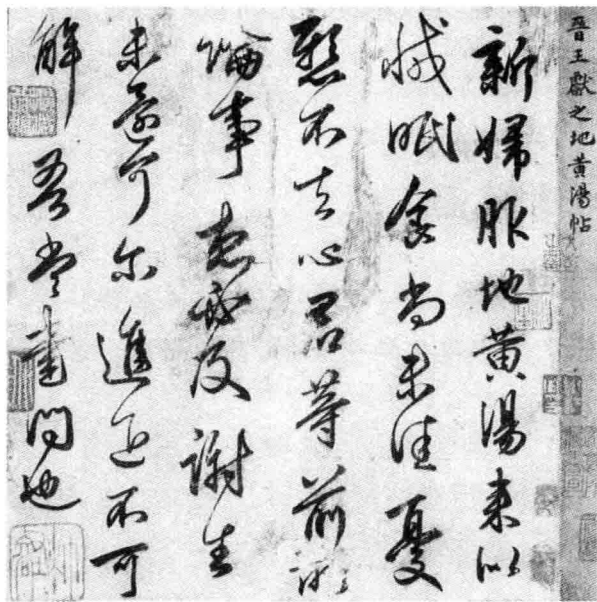 晋王獻之地黄湯帖
新婦服地黄湯来似
減眠食尚未佳憂
懸不去心君等前所
論事想必及謝生
未還可尔進退不可
解吾當書問也